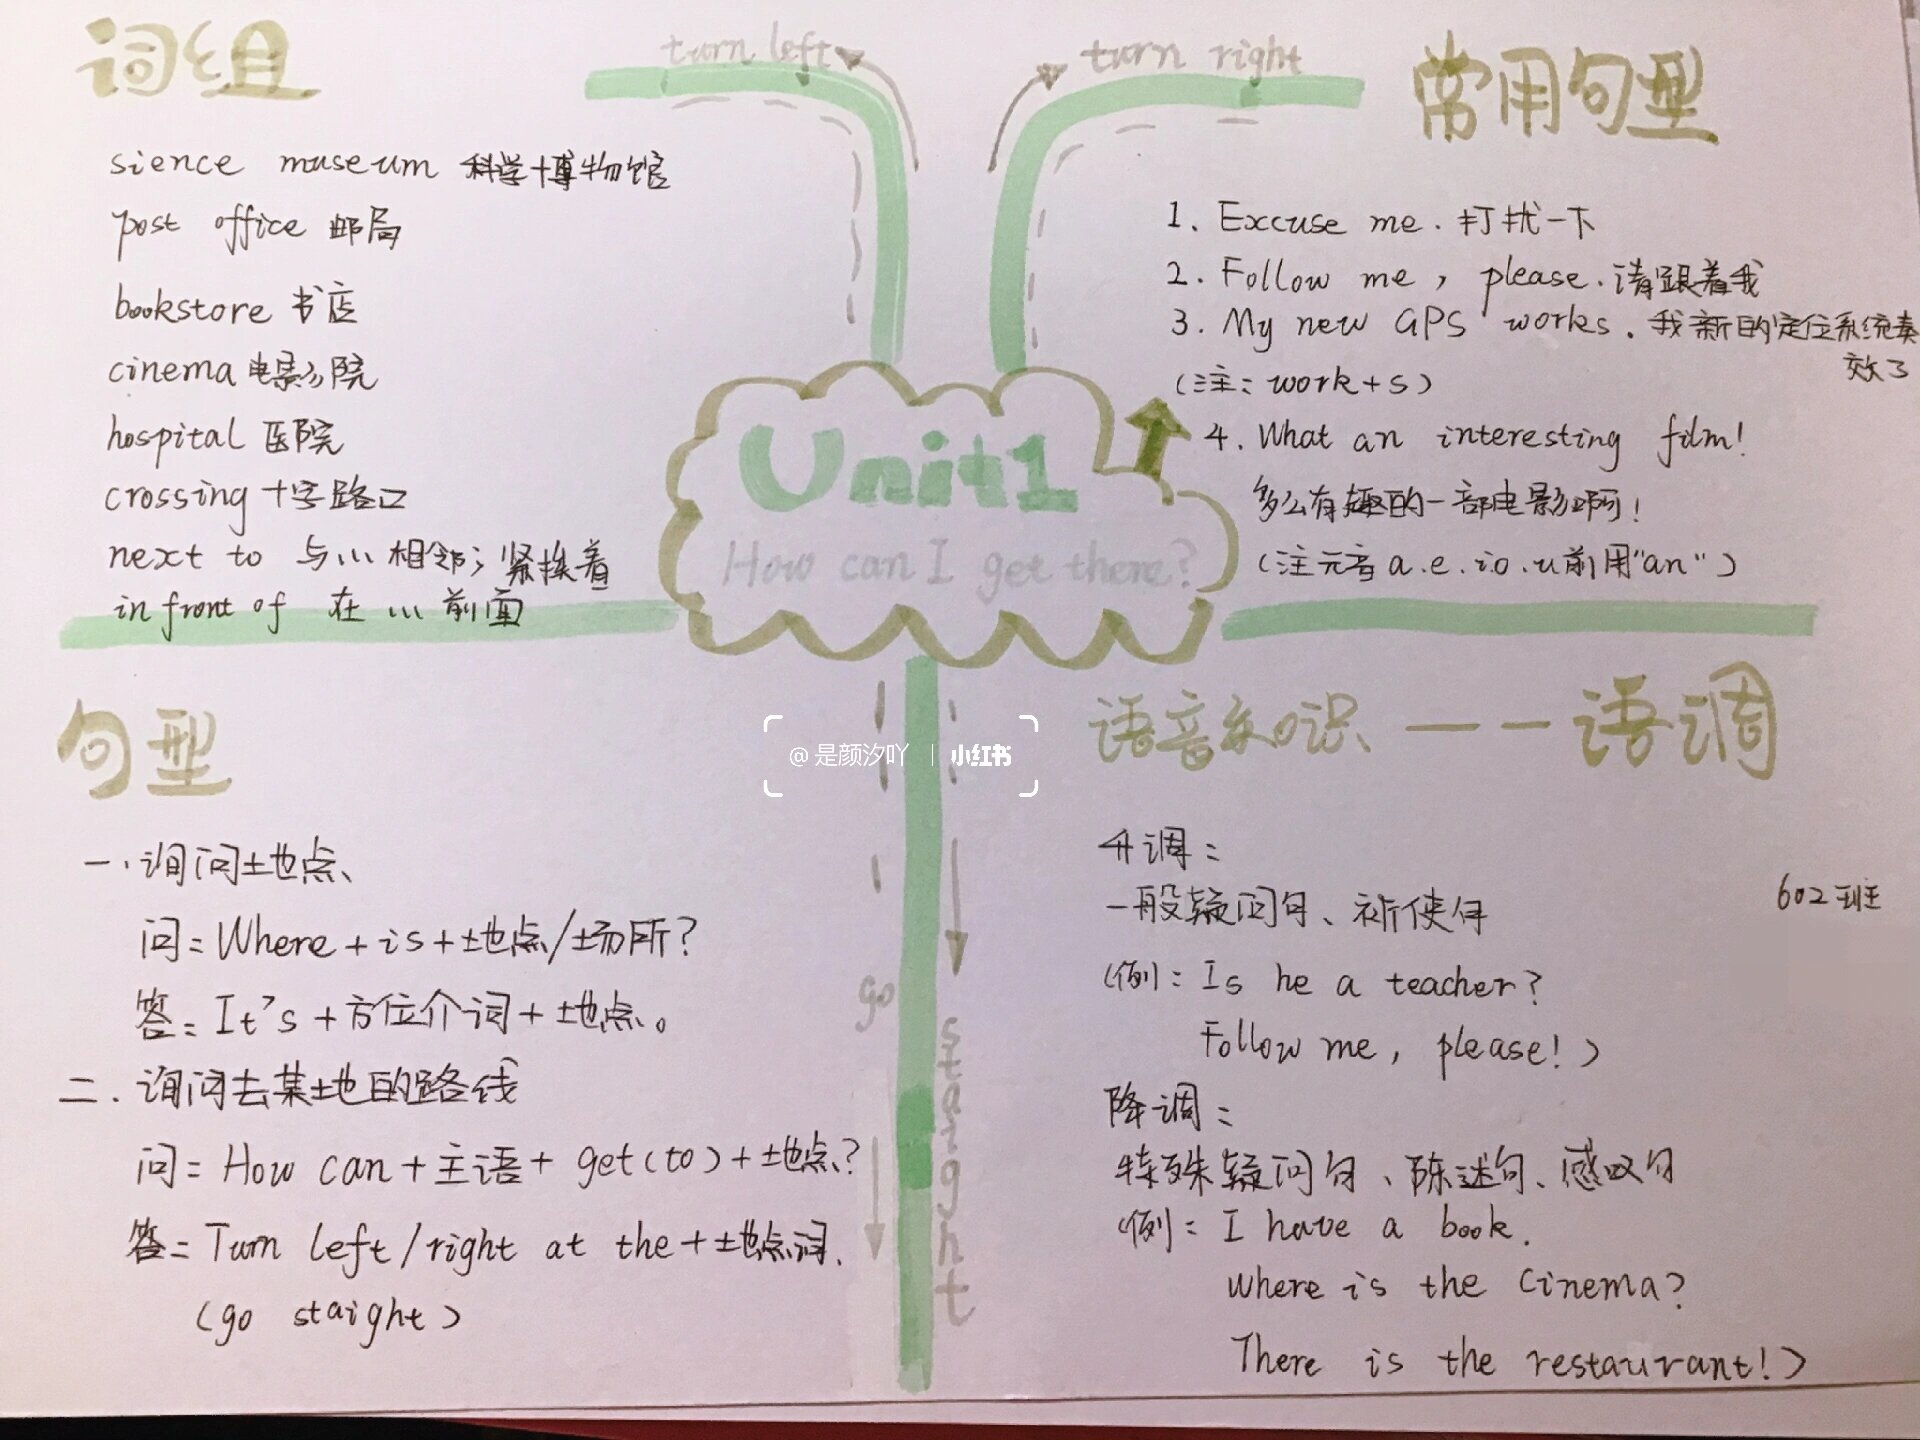 词组
sience museum 科学博物馆
post office 邮局
bookstore 书店
cinema 电影院
hospital 医院
crossing 十字路口
next to 与…相邻;紧挨着
in front of 在…前面
turn left
turn right
常用句型
1. Excuse me. 打扰一下
2. Follow me, please. 请跟着我
3. My new GPS works. 我新的定位系统奏
效了
(注: work+s)
4. What an interesting film!
多么有趣的一部电影啊!
(注元音a.e.i.o.u前用"an")
Unit1
How can I get there?
句型
一.询问地点、
问: Where+is+地点/场所?
答: It's+方位介词+地点。
二.询问去某地的路线
问: How can+主语+get(to)+地点?
答: Turn left/right at the+地点词.
(go staight)
go
@是颜汐吖 | 小红书
语音知识——语调
升调:
一般疑问句、祈使句
(例: Is he a teacher?
Follow me, please!)
降调:
特殊疑问句、陈述句、感叹句
(例: I have a book.
Where is the cinema?
There is the restaurant!)
602班